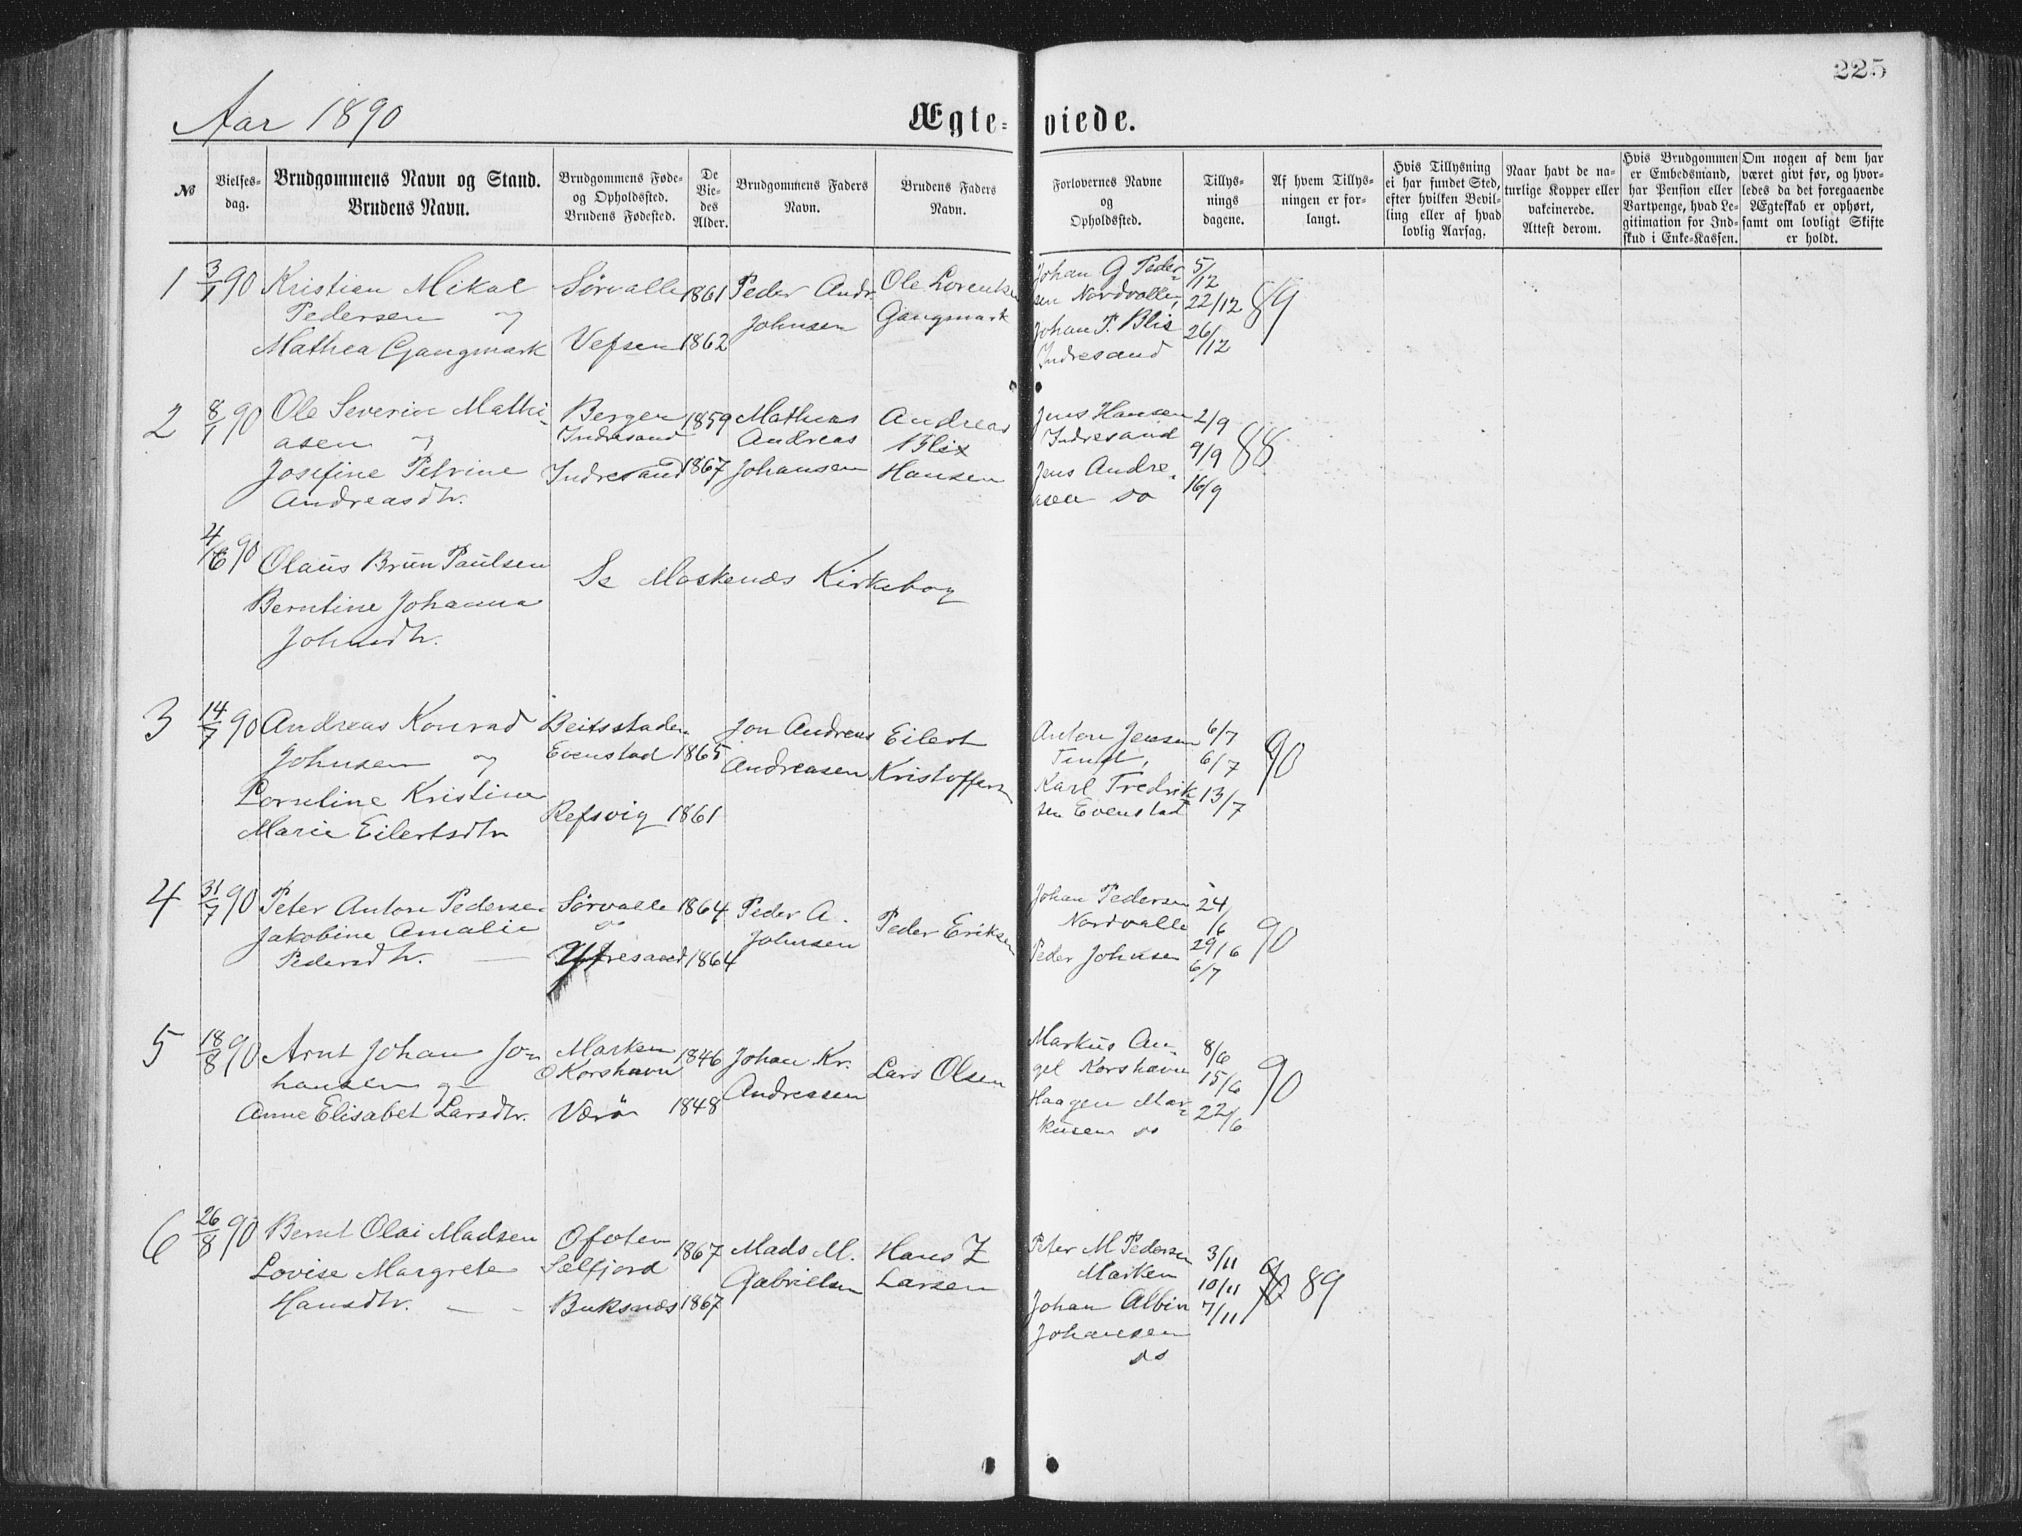 225
Aar 1890
Ægteviede.
№
Vielses-
dag.
Brudgommens Navn og Stand.
Brudens Navn.
Brudgommens Føde-
og Opholdssted.
Brudens Fødested.
De
Vie-
des
Alder.
Brudgommens Faders
Navn.
Brudens Faders
Navn.
Forlovernes Navne
og
Opholdssted.
Tillys-
nings
dagene.
Af hvem Tillys-
ningen er for-
langt.
Hvis Tillysning
ei har fundet Sted,
efter hvilken Bevil-
ling eller af hvad
lovlig Aarsag.
Naar havt de na-
turlige Kopper eller
vakcinerede.
Attest derom.
Hvis Brudgommen
er Embedsmand,
har Pension eller
Vartpenge, hvad Le-
gitimation for Ind-
skud i Enke-Kassen.
Om nogen af dem har
været givt før, og hvor-
ledes da det foregaaende
Ægteskab er ophørt,
samt om lovligt Skifte
er holdt.
1 3/1 90
Kristian Mikal
Pedersen og
Mathea Gangmark
Sørvalle
Vefsen
1861
1862
Peder Andr.
Johnsen
Ole Lorents
Gangmark
Johan G Peder-
sen Nordvalle,
Johan P. Blix
Indresand
5/12
22/12 89
26/12
2 8/1 90
Ole Severin Mathi-
asen og
Josefine Petrine
Andreasdtr.
Bergen
Indresand
Indresand
1859
1867
Mathias
Andreas
Johansen
Andreas
Blix
Hansen
Jens Hansen
Indresand
Jens Andre-
asen do
2/9
9/9 88
16/9
4/6 90
Olaus Brun Paulsen
Berntine Johanna
Johnsdtr.
Se Moskenæs Kirkebog
3 14/7 90
Andreas Konrad
Johnsen og
Lorntine Kristine
Marie Eilertsdtr
Beitsstaden
Evenstad
Refsvig
1865
1861
Jon Andreas
Andreasen
Eilert
Kristoffersen
Anton Jensen
Tind,
Karl Fredrik
sen Evenstad
6/7
6/7 90
13/7
4 31/7 90
Peter Anton Pedersen
Jakobine Amalie
Pedersdtr. —
Sørvalle
og
Yttresand
1864
1864
Peder A.
Johnsen
Peder Eriksen
Johan Pedersen
Nordvalle
Peder Johnsen
24/6
29/6 90
6/7
5 18/8 90
Arnt Johan Jo-
hansen og
Anne Elisabet Larsdtr.
Marken
Korshavn
Værø
1846
1848
Johan Kr.
Andreasen
Lars Olsen
Markus An-
gel Korshavn
Haagen Mar-
kusen do
8/6
15/6 90
22/6
6 26/8 90
Bernt Olai Madsen
Lovise Margrete
Hansdtr. — -
Ofoten
Selfjord
Buksnæs
1867
1867
Mads M.
Gabrielsen
Hans Z
Larsen
Peter M Pedersen
Marken
Johan Albin
Johansen
do
3/11
10/11 90 89
7/11